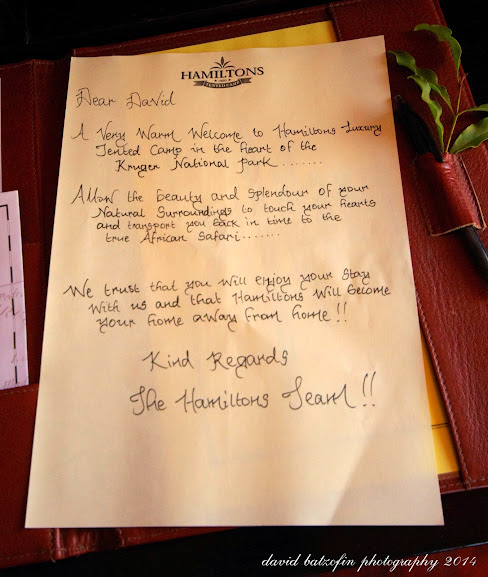 HAMILTONS
TENTED CAMP
Dear David
A Very Warm Welcome to Hamiltons Luxury
Tented Camp in the heart of the
Kruger National Park.......
Allow the beauty and splendour of your
Natural Surroundings to touch your hearts
and transport you back in time to the
true African Safari.......
We trust that you will enjoy your stay
With us and that Hamiltons Will become
your home away from home!!
Kind Regards
The Hamiltons Team!!
david batzofin photography 2014